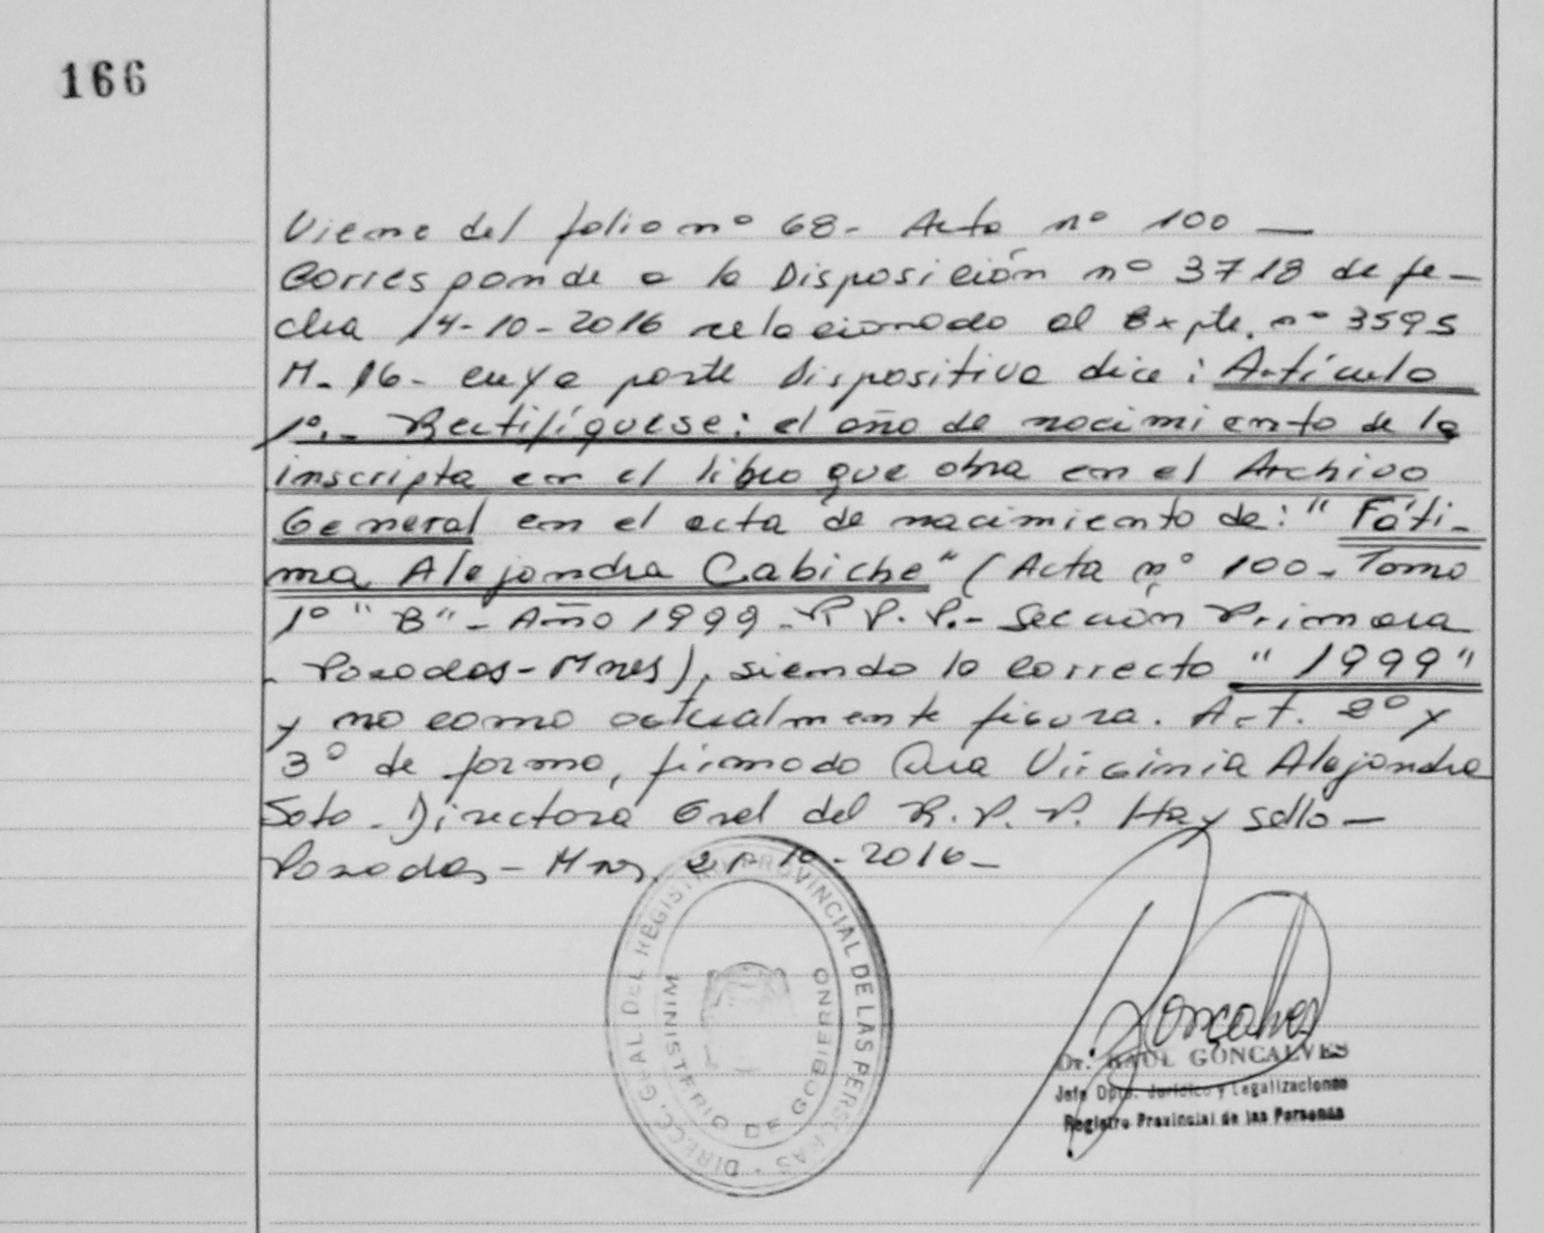 166
Viene del folio nº 68- Acta nº 100 —
Corresponde a la Disposición nº 3718 de fe-
cha 14-10-2016 relacionado al Expte. nº 3595
M-16- cuya parte Dispositiva dice: Artículo
1º.- Rectifíquese: el año de nacimiento de la
inscripta en el libro que obra en el Archivo
General en el acta de nacimiento de: "Fáti-
ma Alejandra Cabiche" (Acta nº 100- Tomo
1º "B"- Año 1999-R.P.P.- Sección Primera
Posadas-Mnes), siendo lo correcto "1999"
y no como actualmente figura. Art. 2º y
3º de forma, firmado Dra Virginia Alejandra
Soto- Directora Gral del R.P.P. Hay sello-
Posadas- Mnes, 21-10-2016-
DIRECC. GRAL DEL REGISTRO PROVINCIAL DE LAS PERSONAS
MINISTERIO DE GOBIERNO
Goncalves
Dr. RAUL GONCALVES
Jefe Dpto. Jurídico y Legalizaciones
Registro Provincial de las Personas